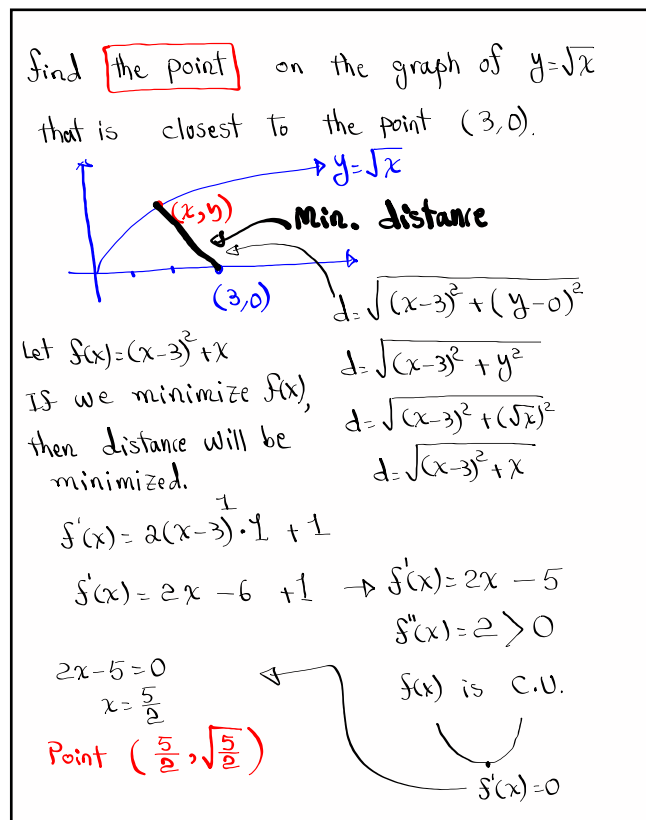 find the point on the graph of y=√x
that is closest to the point (3,0).
y=√x
(x,y)
Min. distance
(3,0)
d=√((x-3)²+(y-0)²)
d=√((x-3)²+y²)
d=√((x-3)²+(√x)²)
d=√((x-3)²+x)
Let f(x)=(x-3)²+x
If we minimize f(x),
then distance will be
minimized.
f'(x)=2(x-3)¹·1+1
f'(x)=2x-6+1 → f'(x)=2x-5
f''(x)=2>0
f(x) is C.U.
f'(x)=0
2x-5=0
x=5/2
Point (5/2,√(5/2))